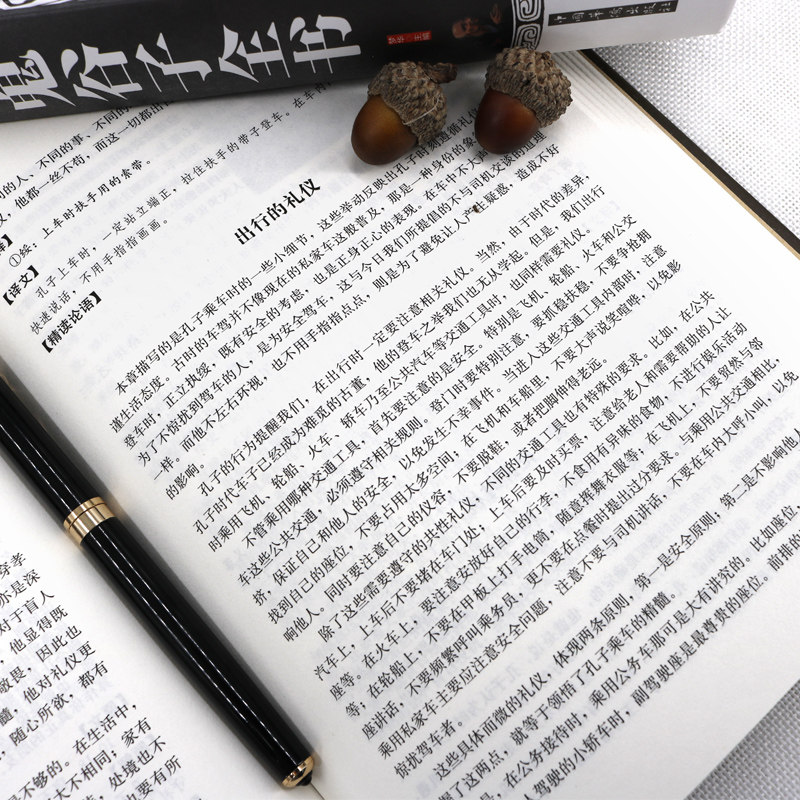 鬼谷子全书
的人、不同的事、不同的
，他都一丝不苟，而这一切都出
①绥：上车时扶手用的索带。
【译文】
孔子上车时，一定站立端正，拉住扶手的带子登车。在车内
快速说话，不用手指指画画。
【精读论语】
出行的礼仪
本章描写的是孔子乘车时的一些小细节，这些举动反映出孔子时刻遵循礼仪
谨生活态度。古时的车驾并不像现在的私家车这般普及，那是一种身份的象
登车时，正立执绥，既有安全的考虑，也是正身正心的表现。在车中不大声
为了不惊扰到驾车的人，是为安全驾车，这与今日我们所提倡的不与司机交谈的道理
一样。而他不左右环视，也不用手指指点点，则是为了避免让人产生疑惑，造成不好
的影响。
孔子的行为提醒我们，在出行时一定要注意相关礼仪。当然，由于时代的差异，
孔子时代车子已经成为难觅的古董，他的登车之举我们也无从学起。但是，我们出行
时乘用飞机、轮船、火车、轿车乃至公共汽车等交通工具时，也同样需要礼仪。
不管乘用哪种交通工具，首先要注意的是安全。特别是飞机、轮船、火车和公交
车这些公共交通，必须遵守相关规则。登门时要特别注意，要抓稳扶稳，不要争抢拥
挤，保证自己和他人的安全，以免发生不幸事件。当进入这些交通工具内部时，注意
找到自己的座位，不要占用太多空间；在飞机和车船里，不要大声说笑喧哗，以免影
响他人。同时要注意自己的仪容，不要脱鞋，或者把脚伸得老远。
除了这些需要遵守的共性礼仪，不同的交通工具也有特殊的要求。比如，在公共
汽车上，上车后不要堵在车门处；上车后要及时买票，注意给老人和需要帮助的人让
座等。在火车上，要注意安放好自己的行李，不食用有异味的食物，不进行娱乐活动
等；在轮船上，不要在甲板上打手电筒，随意挥舞衣服等；在飞机上，不要贸然与邻
座讲话，不要频繁呼叫乘务员，更不要在点餐时提出过分要求。与乘用公共交通相比，
乘用私家车主要应注意安全问题，注意不要与司机讲话，不要在车内大呼小叫，以免
惊扰驾车者。
这些具体而微的礼仪，体现两条原则，第一是安全原则，第二是不影响他人
握了这两点，就等于领悟了孔子乘车的精髓。
是，在公务接待时，乘用公务车那可是大有讲究的。比如座位，
人驾驶的小轿车时，副驾驶座是最尊贵的座位。前排的
亦是深
对于盲人
，他显得既
敬畏，因此也
髓，他对礼仪更
，随心所欲，都有
。在生活中，
是不够的。
大不相同；家有
，处境也不
也要有所